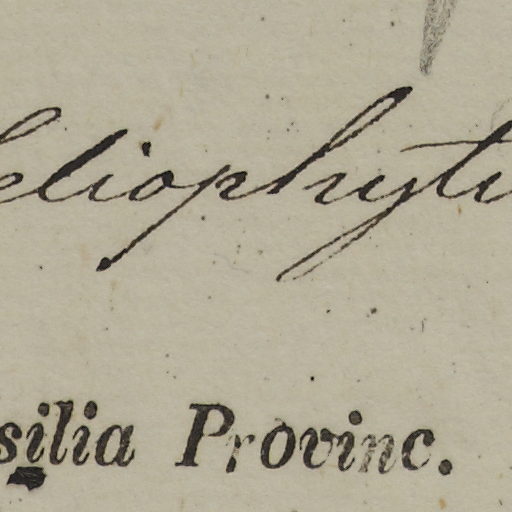 eliophyti
silia Provinc.